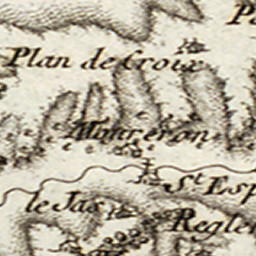 Plan de Croix
Maureron
St. Esp
le Jas
Regler